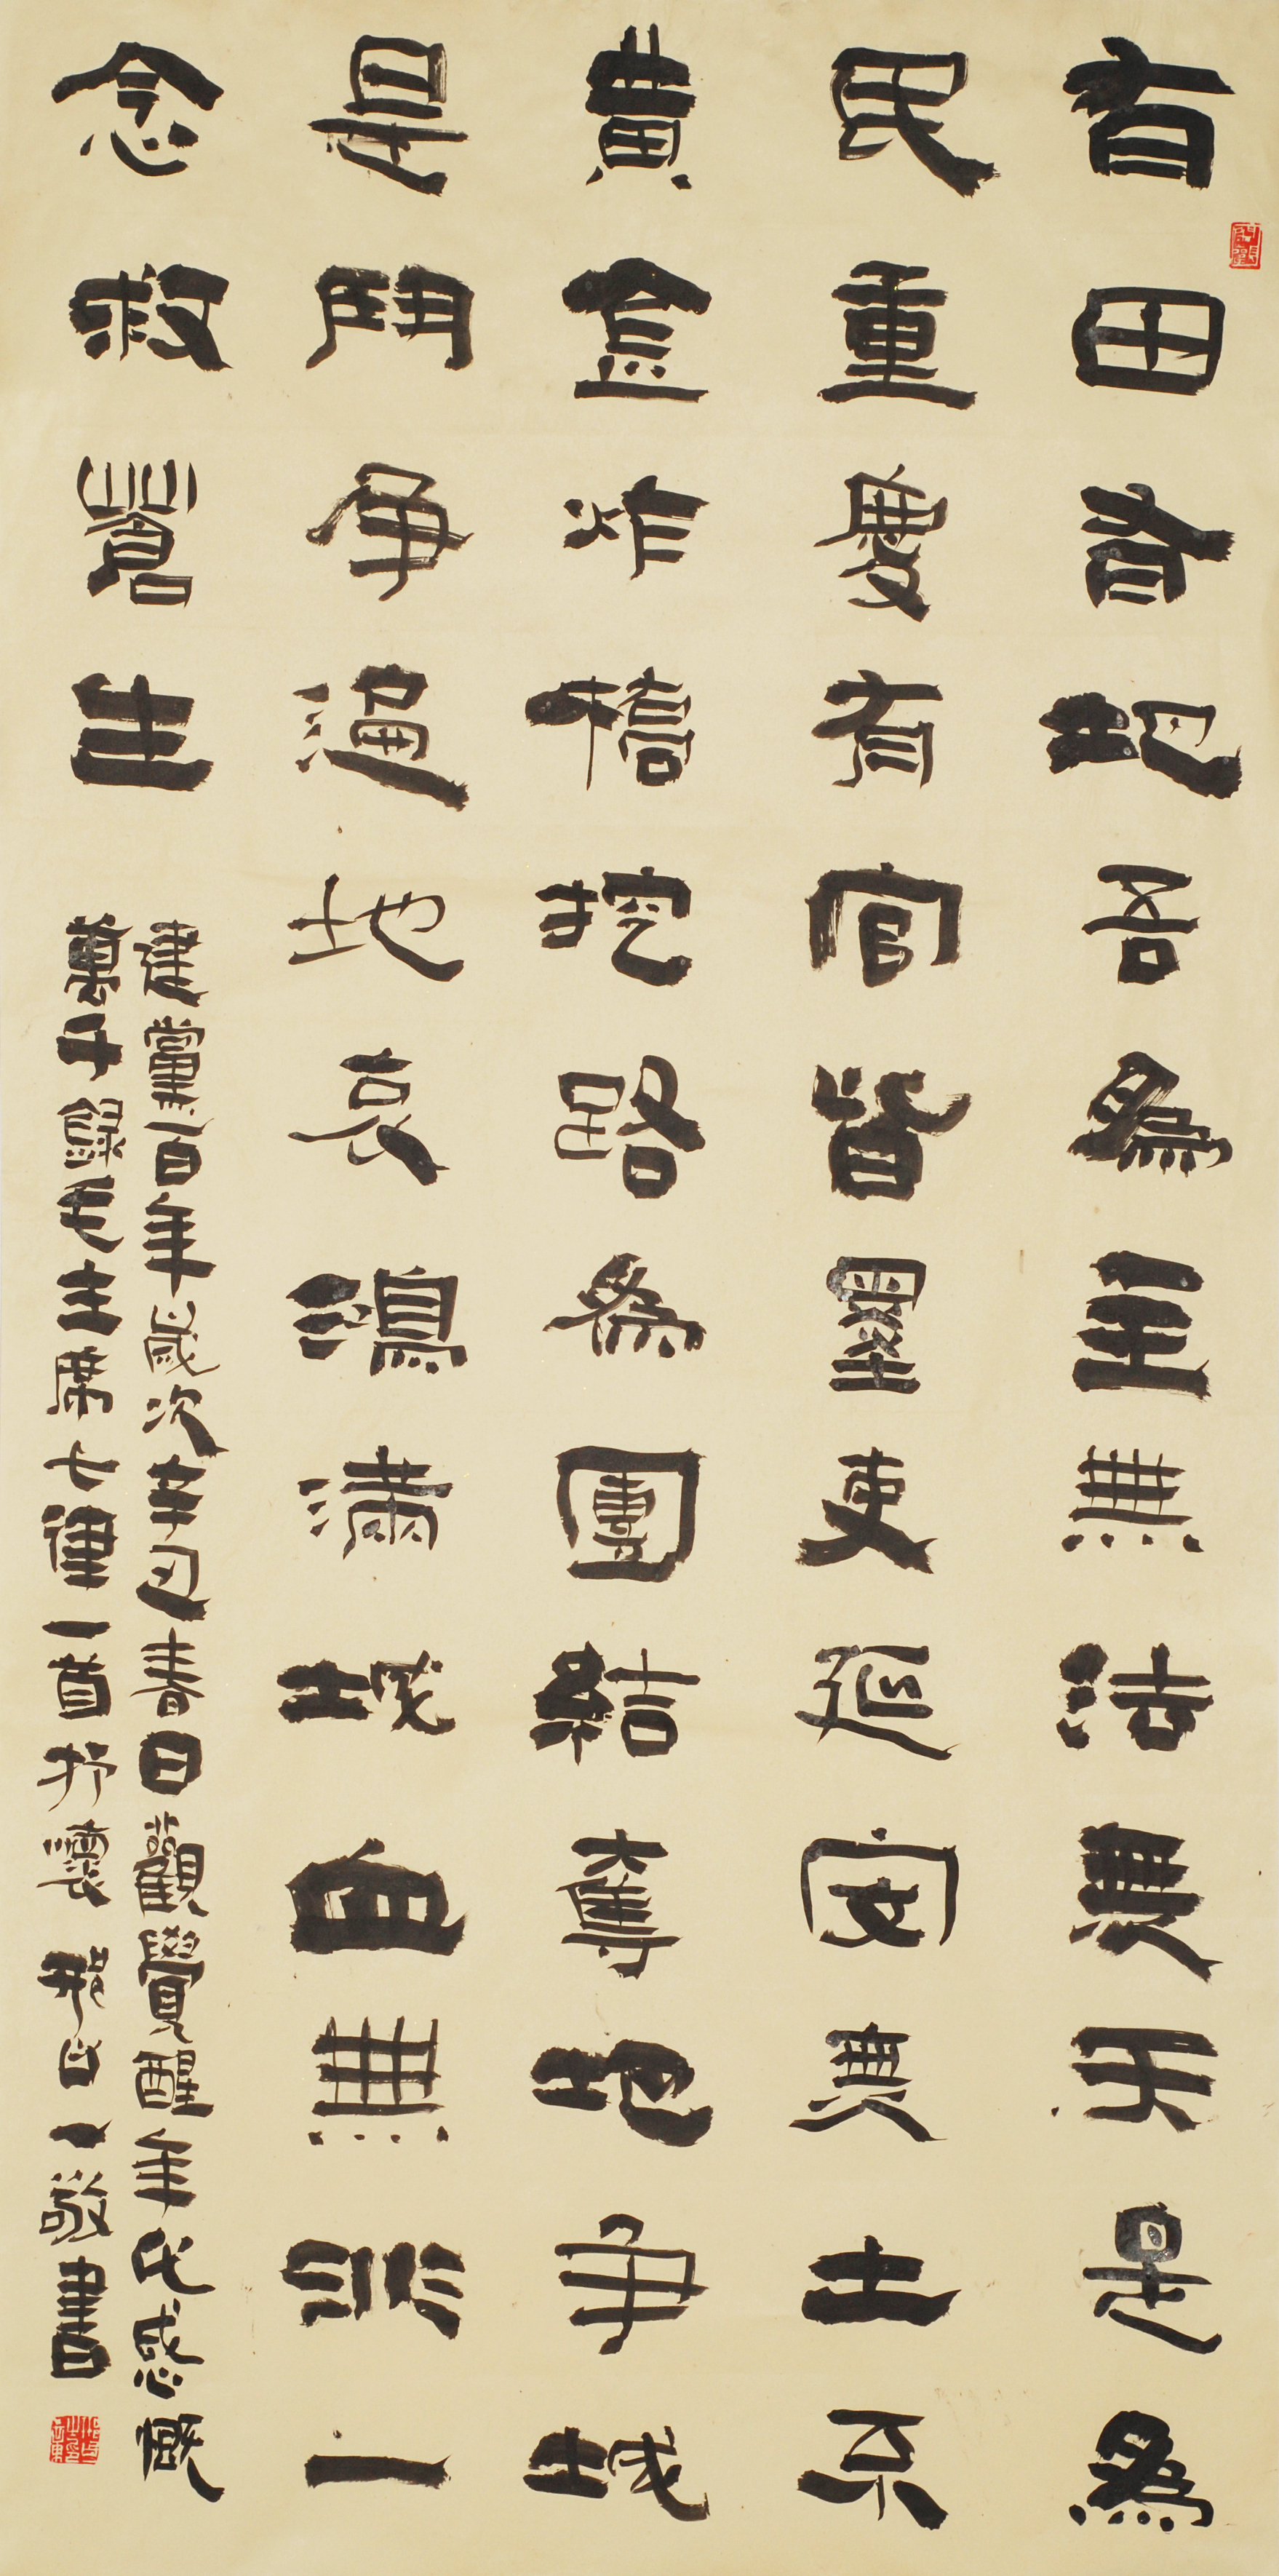 有田有地吾為主無法無天是為
民重慶有官皆墨吏延安無土不
黃金炸橋挖路為團結奪地争城
是鬥争遍地哀鴻滿城血無非一
念救蒼生
建黨百年歲次辛丑春日觀覺醒年代感慨
萬千錄毛主席七律一首抒懷 敬書